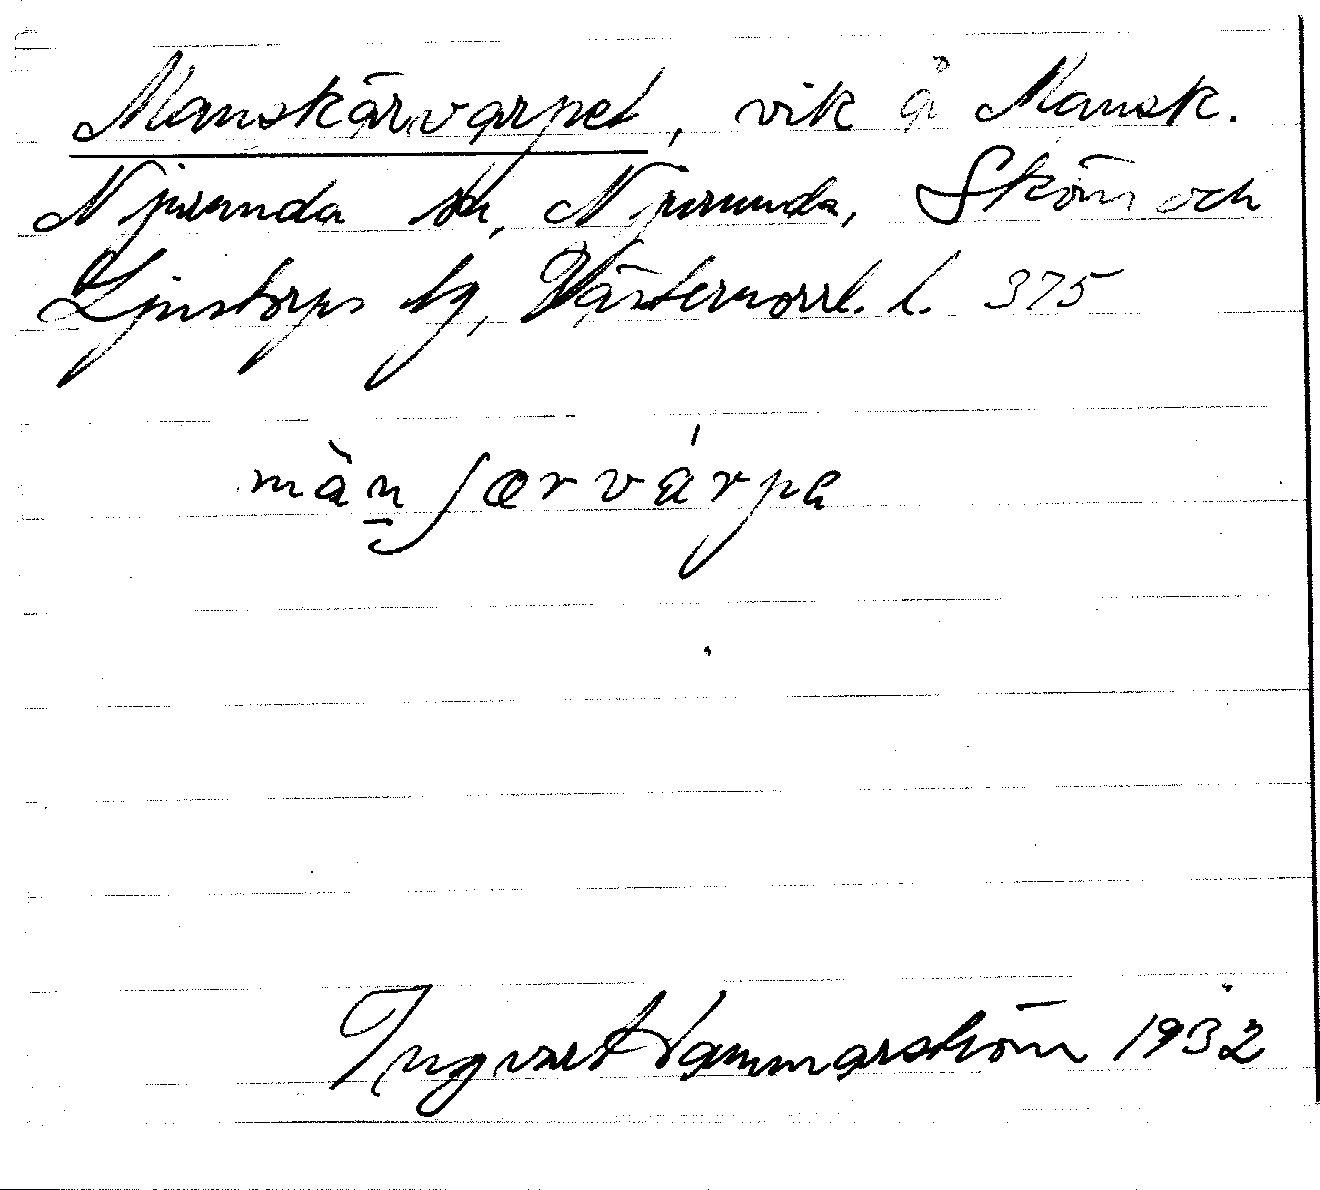 Manskärvarpet, vik å Mansk.
Njurunda sn, Njurunda, Sköns och
Ljustorps tg, Västernorrl. l. 375
màn̠ʃærvárpa
Ingvar Hammarström 1932